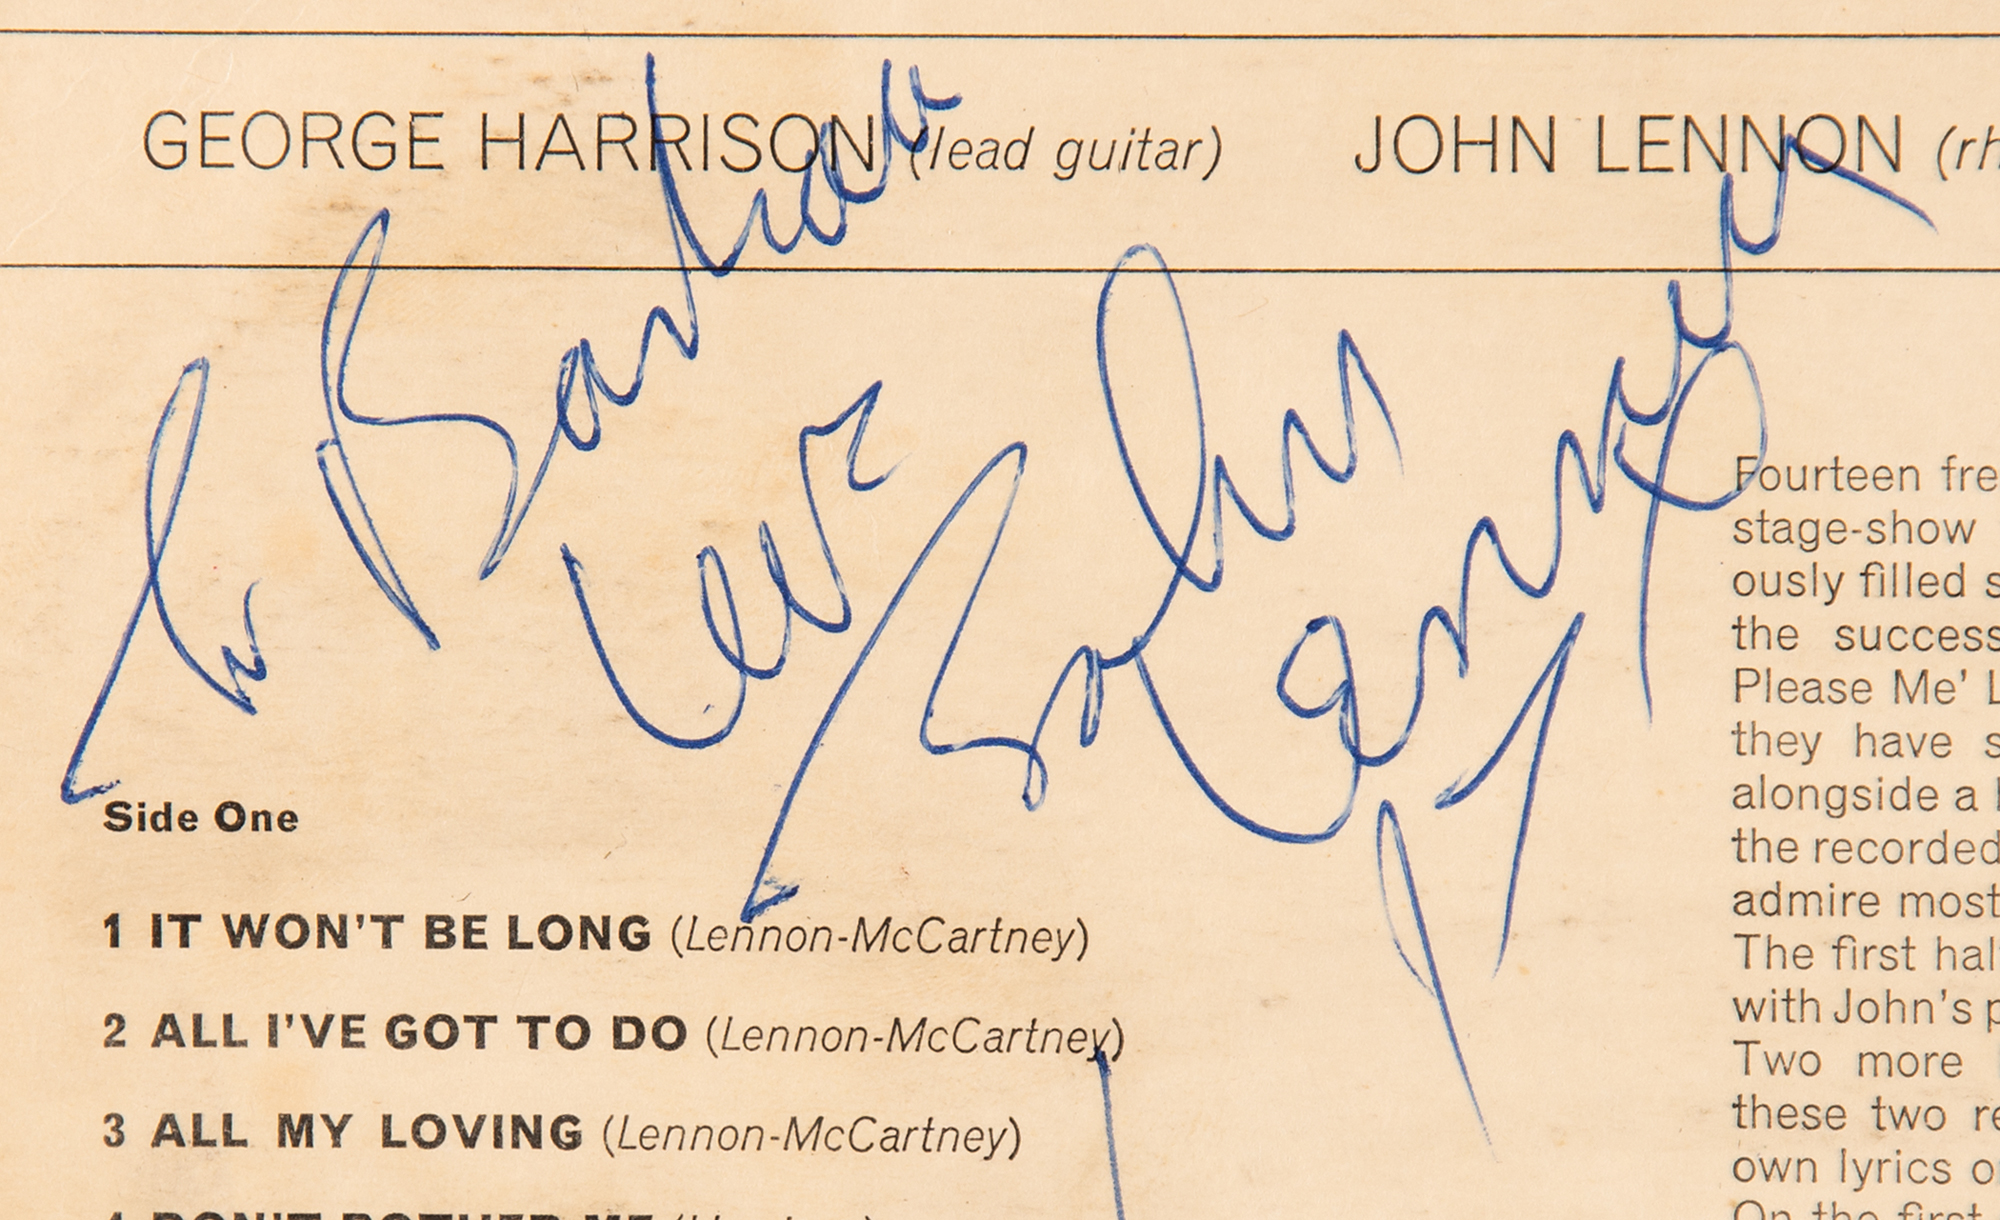 GEORGE HARRISON (lead guitar) JOHN LENNON (rh
To Barbara
love
John Lennon
Side One
1 IT WON'T BE LONG (Lennon-McCartney)
2 ALL I'VE GOT TO DO (Lennon-McCartney)
3 ALL MY LOVING (Lennon-McCartney)
4 DON'T BOTHER ME
Fourteen fre
stage-show
ously filled s
the success
Please Me' L
they have s
alongside a
the recorded
admire most
The first hal
with John's p
Two more
these two re
own lyrics o
On the first